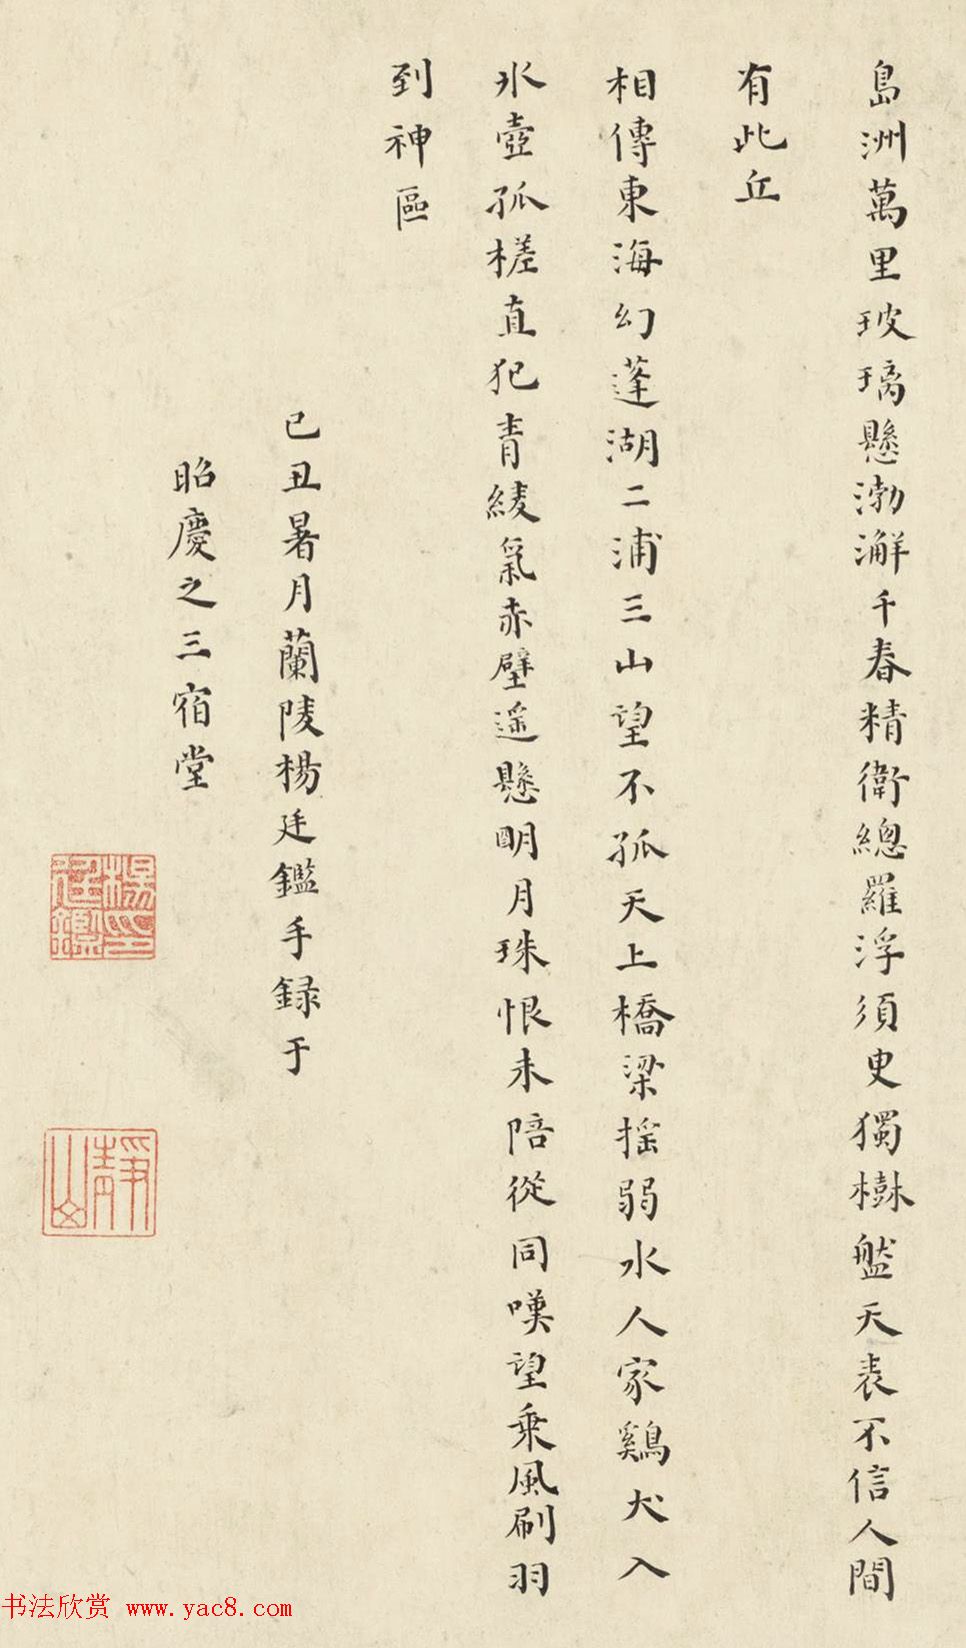 島洲萬里玻璃懸渤澥千春精衛總羅浮須叟獨樹盤天表不信人間
有此丘
相傳東海幻蓬湖二浦三山望不孤天上橋梁搖弱水人家鷄犬入
氷壺孤槎直犯青綾氣赤壁遥懸明月珠恨未陪從同嘆望乗風刷羽
到神區
己丑暑月蘭陵楊廷鑑手録于
昭慶之三宿堂
楊廷鑑印
靜山
书法欣赏 www.yac8.com